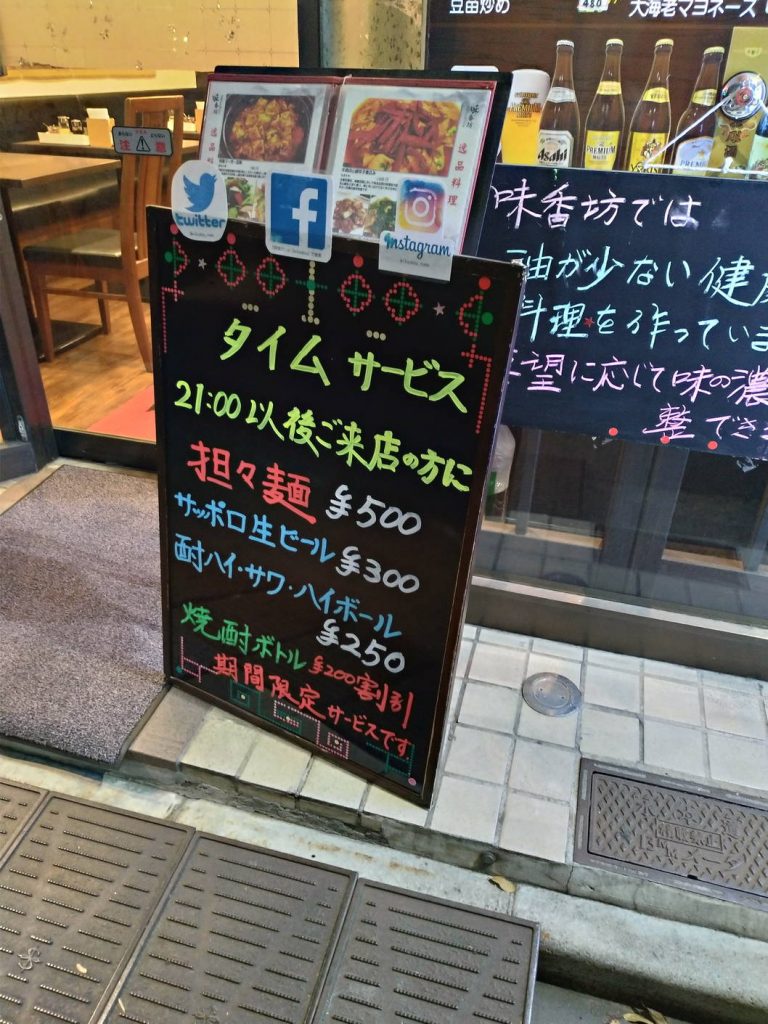 豆苗炒め
480
大海老マヨネーズ
逸品料理
逸品料理
注意
twitter
Instagram
タイムサービス
21:00以後ご来店の方に
担々麺 ¥500
サッポロ生ビール ¥300
酎ハイ・サワ・ハイボール
¥250
焼酎ボトル ¥200割引
期間限定サービスです
味香坊では
油が少ない健康
料理を作っていま
希望に応じて味の濃
整でき
Asahi
PREMIUM
PREMIUM